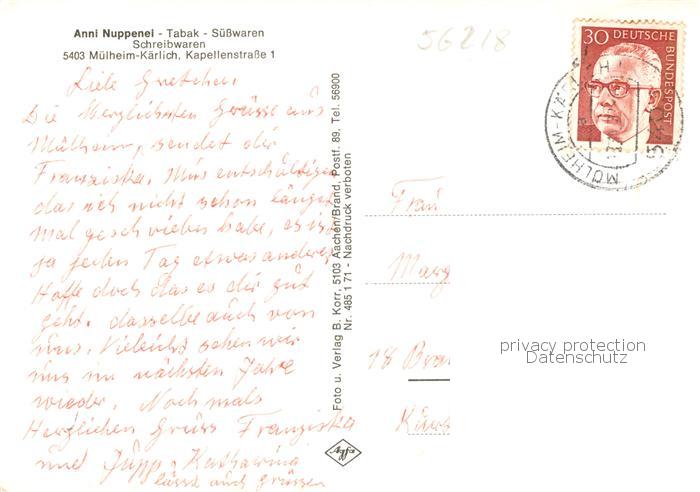 Anni Nuppenei - Tabak - Süßwaren
Schreibwaren
5403 Mülheim-Kärlich, Kapellenstraße 1
56218
Liebe Gretchen,
Die Herzlichsten Grüsse aus
Mülheim, sendet dir
Franziska. Mus entschuldigen
das ich nicht schon längst
mal geschrieben habe, es ist
ja jeden Tag etwas anderes
Hoffe doch das es dir gut
geht. dasselbe auch von
uns. Vieleicht sehen wir
uns im nächsten Jahre
wieder. Noch mals
Herzlichen Gruss Franziska
und Jupp, Katharina
lässt auch Grüssen
Foto u. Verlag B. Korr, 5103 Aachen/Brand, Postf. 89, Tel. 56900
Nr. 485 1 71 - Nachdruck verboten
Agfa
30 DEUTSCHE BUNDESPOST
MÜLHEIM-KÄRLICH
Frau
Marg
18
privacy protection
Datenschutz